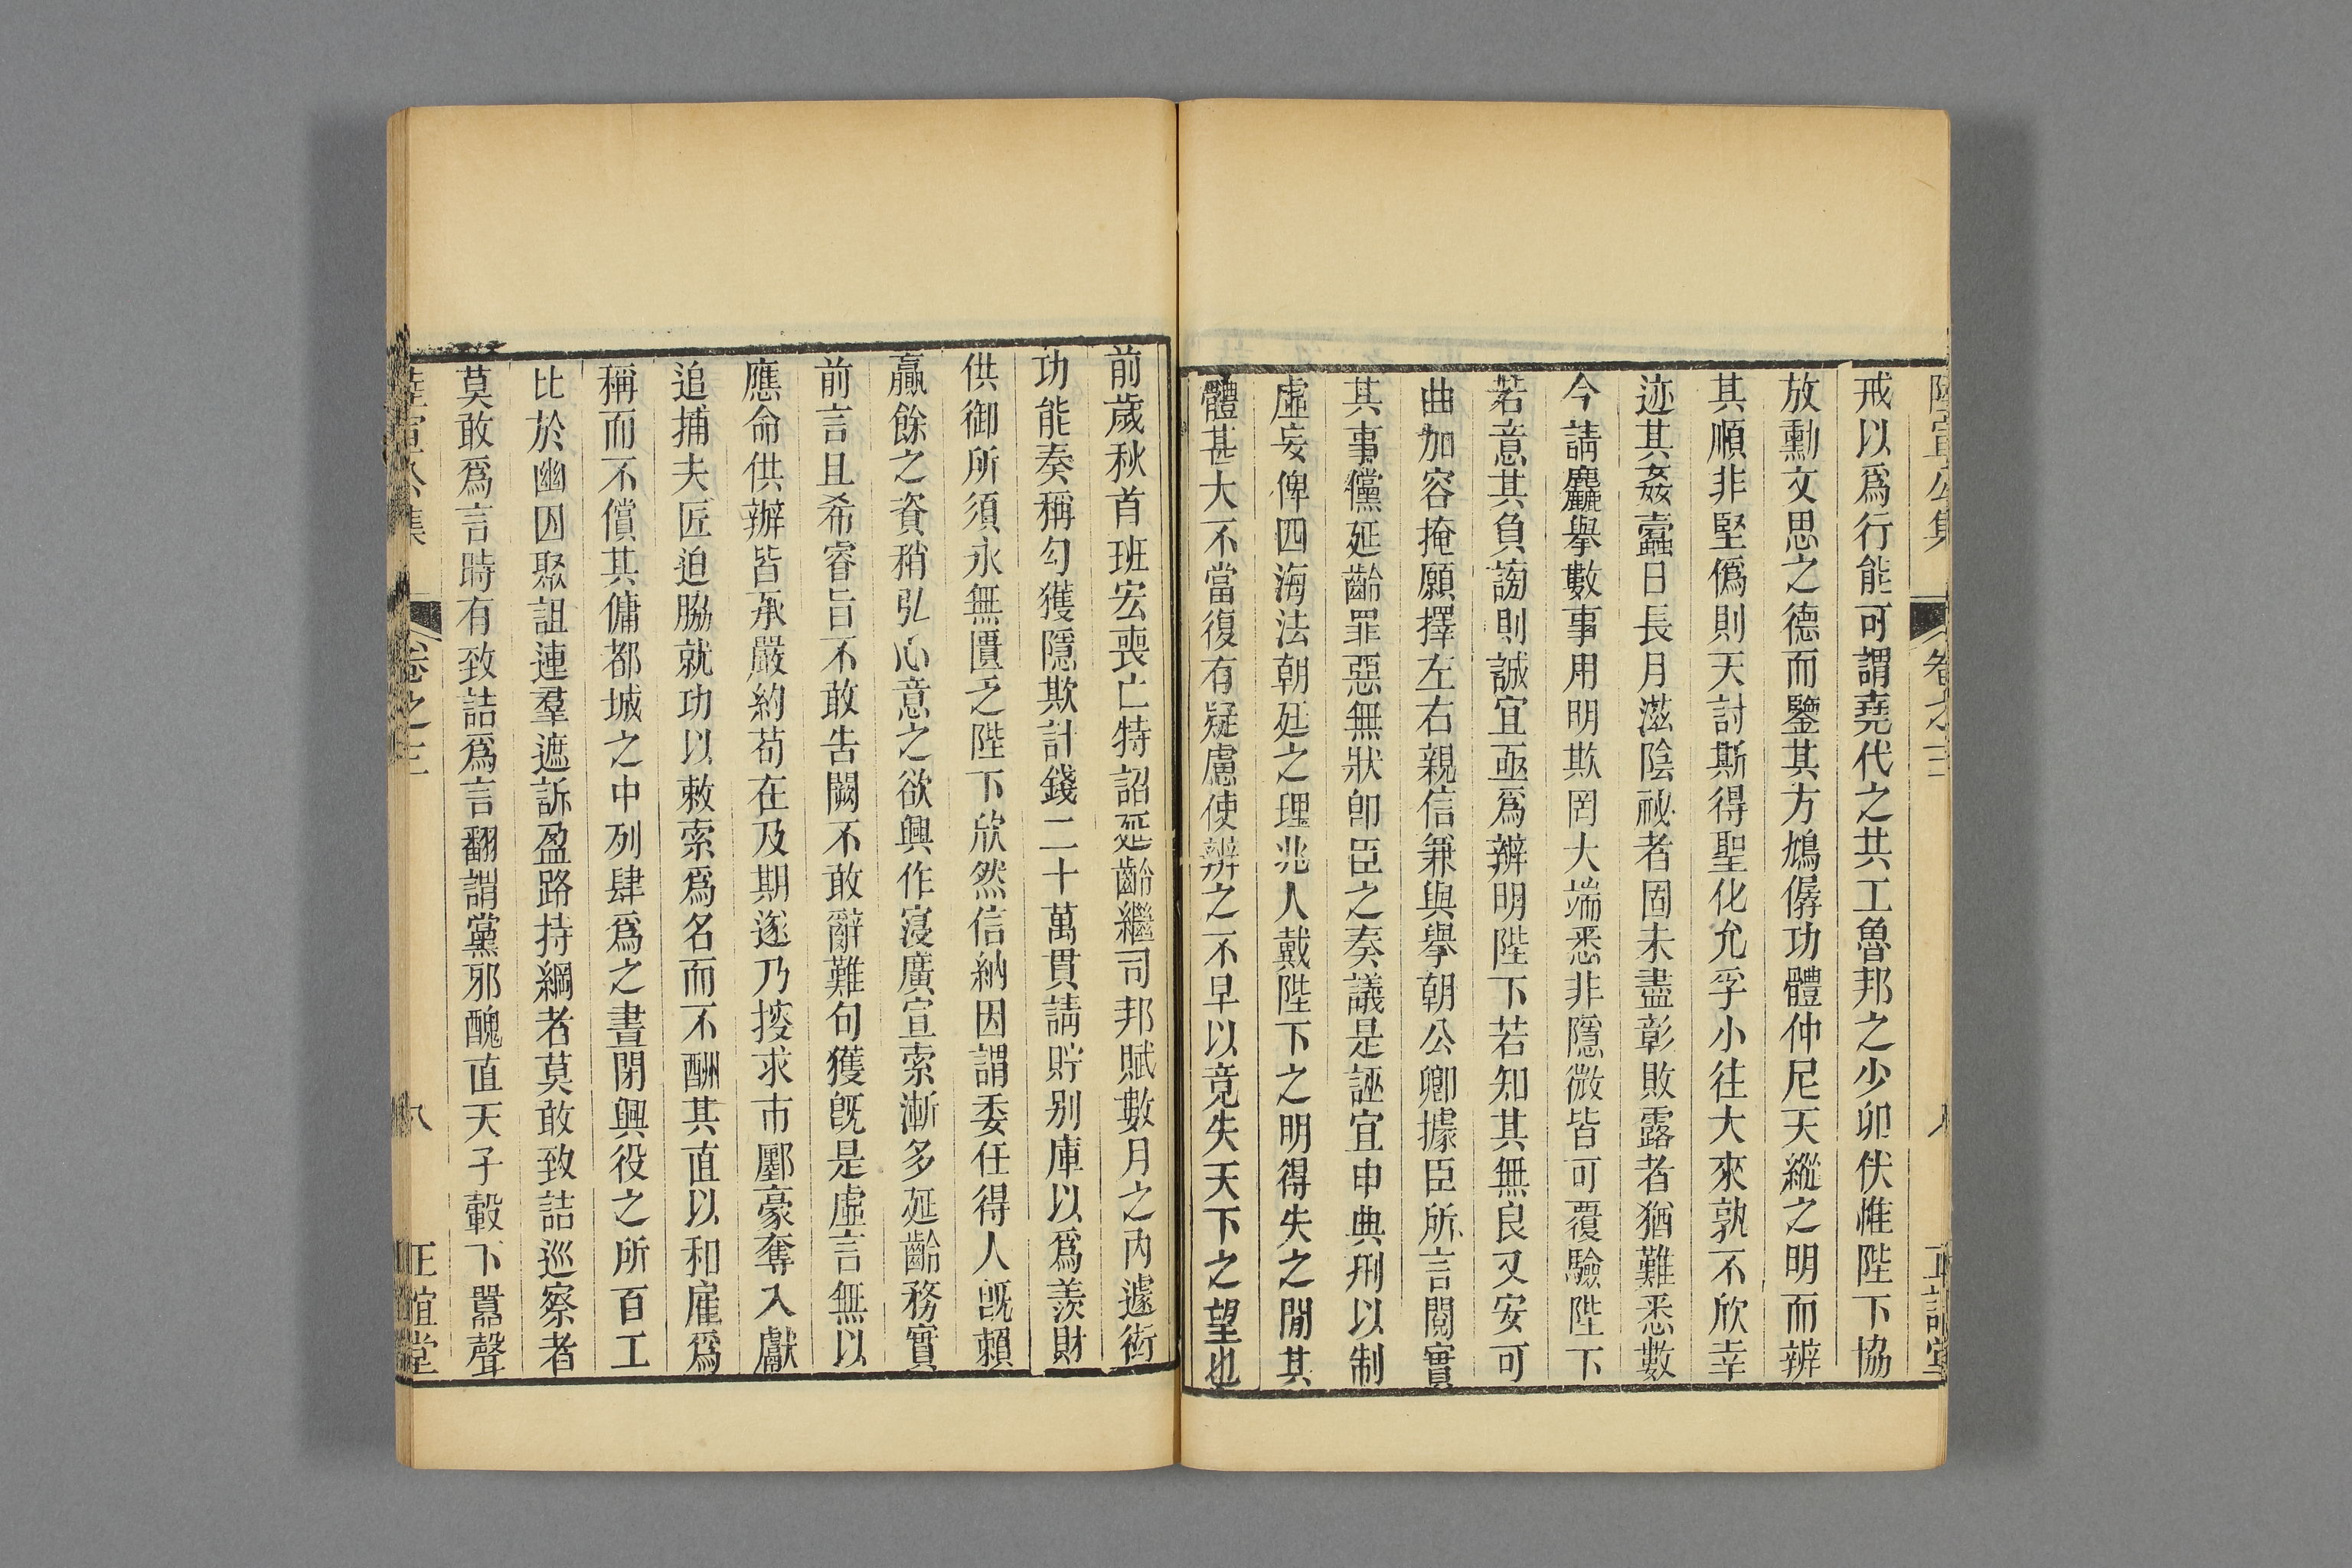 陸宣公集 卷之三 八 正誼堂
戒以爲行能可謂堯代之共工魯邦之少卯伏惟陛下協
放勳文思之德而鑒其方鳩僝功體仲尼天縱之明而辨
其順非堅僞則天討斯得聖化允孚小往大來孰不欣幸
迹其姦蠹日長月滋陰祕者固未盡彰敗露者猶難悉數
今請麤舉數事用明欺罔大端悉非隱微皆可覆驗陛下
若意其負謗則誠宜亟爲辨明陛下若知其無良又安可
曲加容掩願擇左右親信兼與舉朝公卿據臣所言閱實
其事儻延齡罪惡無狀卽臣之奏議是誣宜申典刑以制
虛妄俾四海法朝廷之理兆人戴陛下之明得失之閒其
體甚大不當復有疑慮使辨之不早以竟失天下之望也
前歲秋首班宏喪亡特詔延齡繼司邦賦數月之內遽衒
功能奏稱勾獲隱欺計錢二十萬貫請貯别庫以爲羨財
供御所須永無匱乏陛下欣然信納因謂委任得人旣賴
贏餘之資稍弘心意之欲興作寖廣宣索漸多延齡務實
前言且希睿旨不敢告闕不敢辭難句獲旣是虛言無以
應命供辦皆承嚴約苟在及期遂乃搜求市鄽豪奪入獻
追捕夫匠迫脇就功以敕索爲名而不酬其直以和雇爲
稱而不償其傭都城之中列肆爲之晝閉興役之所百工
比於幽囚聚詛連羣遮訴盈路持綱者莫敢致詰巡察者
莫敢爲言時有致詰爲言翻謂黨邪醜直天子轂下嚚聲
陸宣公集 卷之三 八 正誼堂